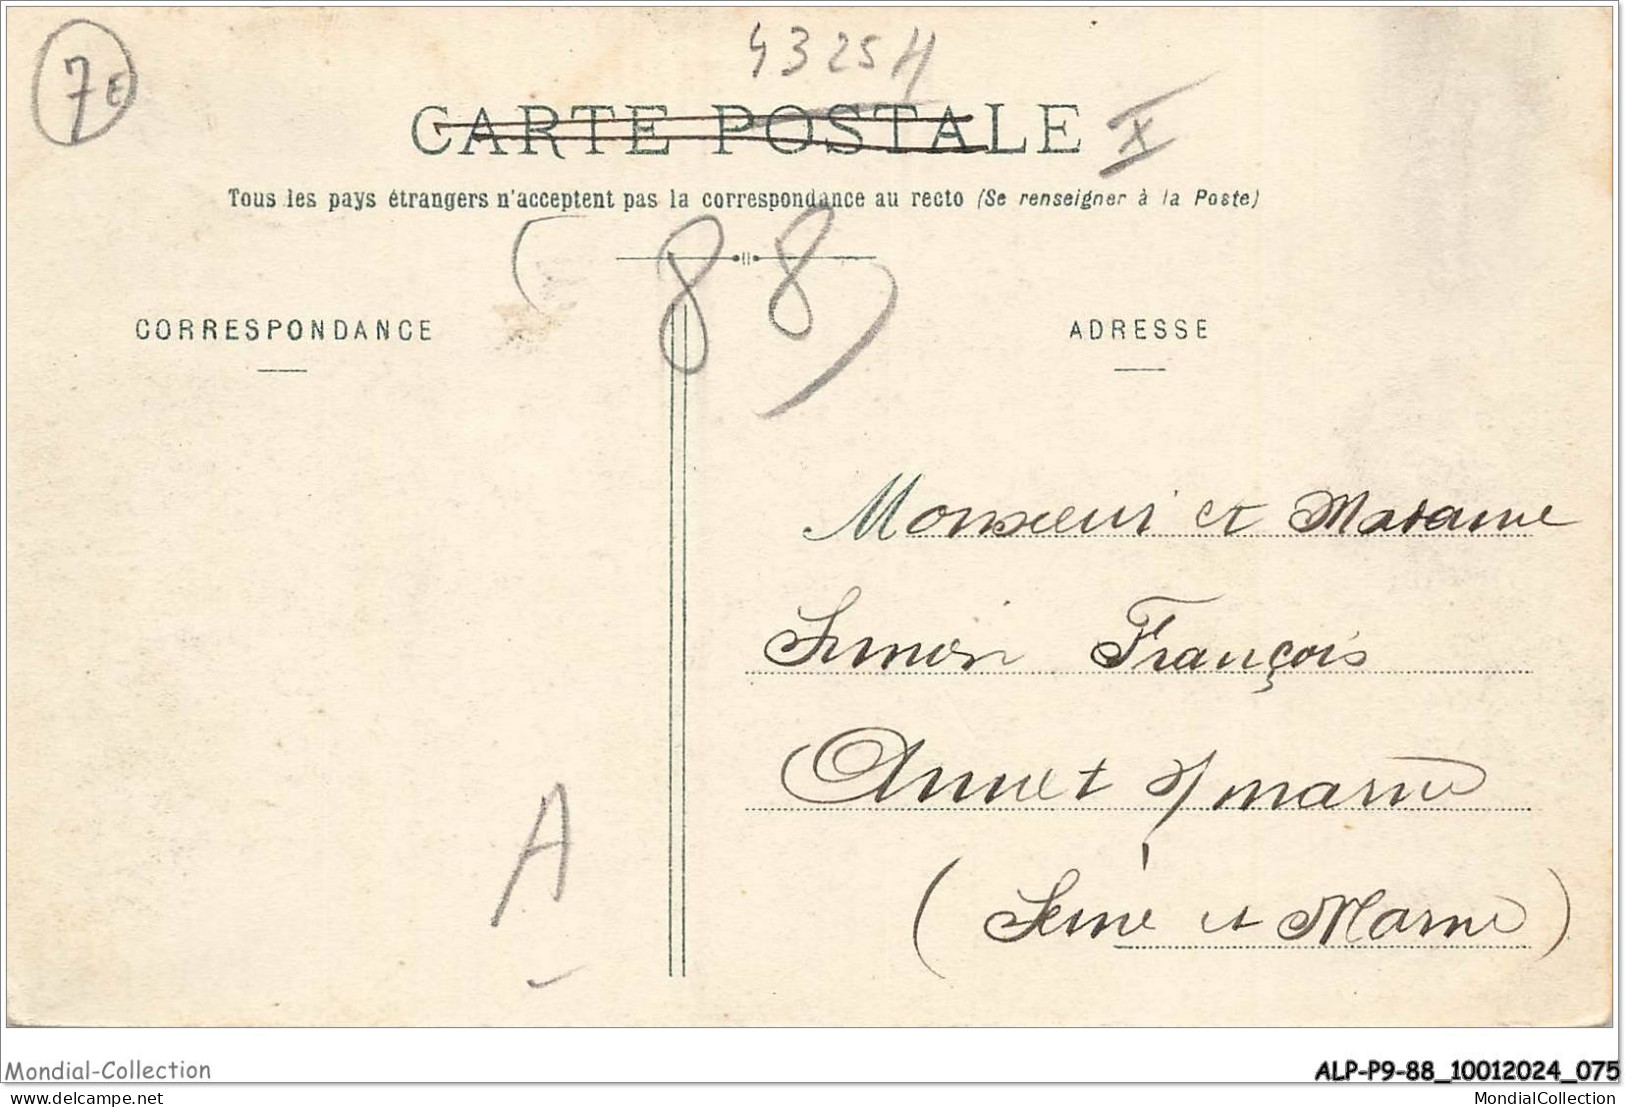 7E
4325H
CARTE POSTALE X
Tous les pays étrangers n'acceptent pas la correspondance au recto (Se renseigner à la Poste)
(88)
CORRESPONDANCE
ADRESSE
Monsieur et Madame
Simon François
Annet s/ marne
A
(Seine et Marne)
Mondial-Collection
ALP-P9-88_10012024_075
www.delcampe.net
MondialCollection